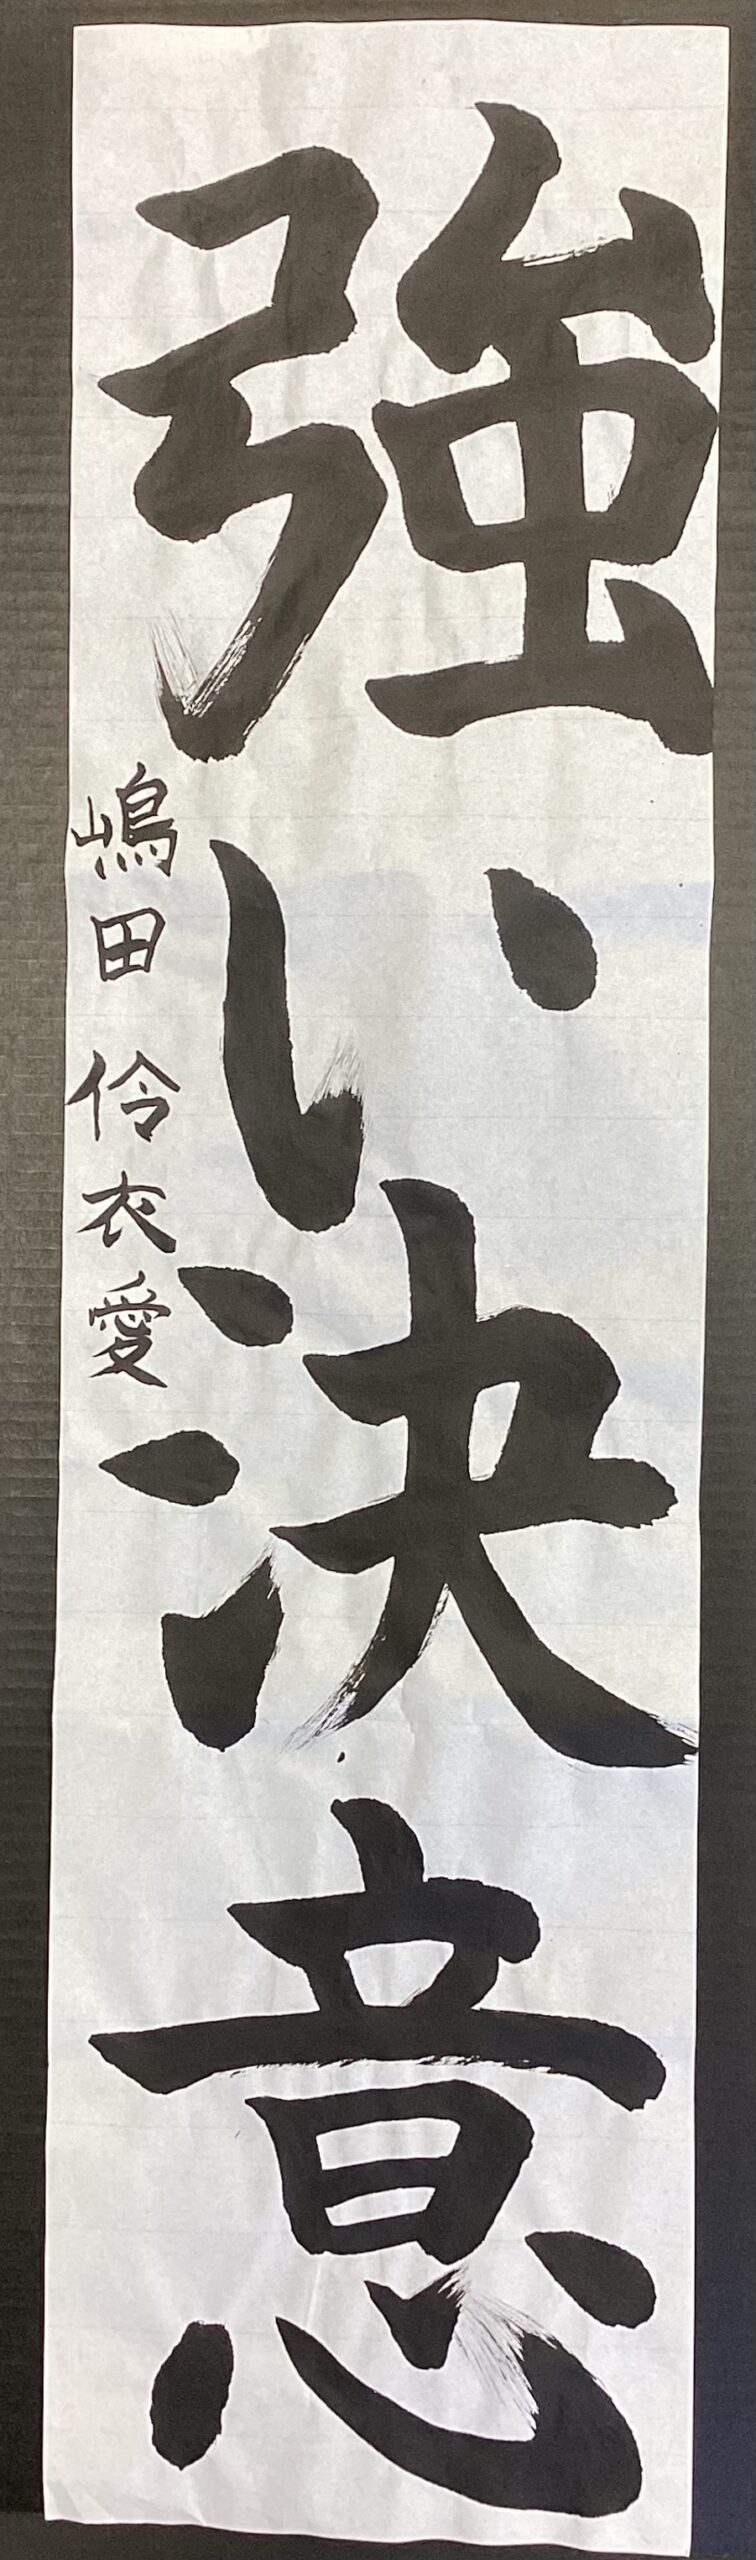 強い決意
嶋田伶衣愛